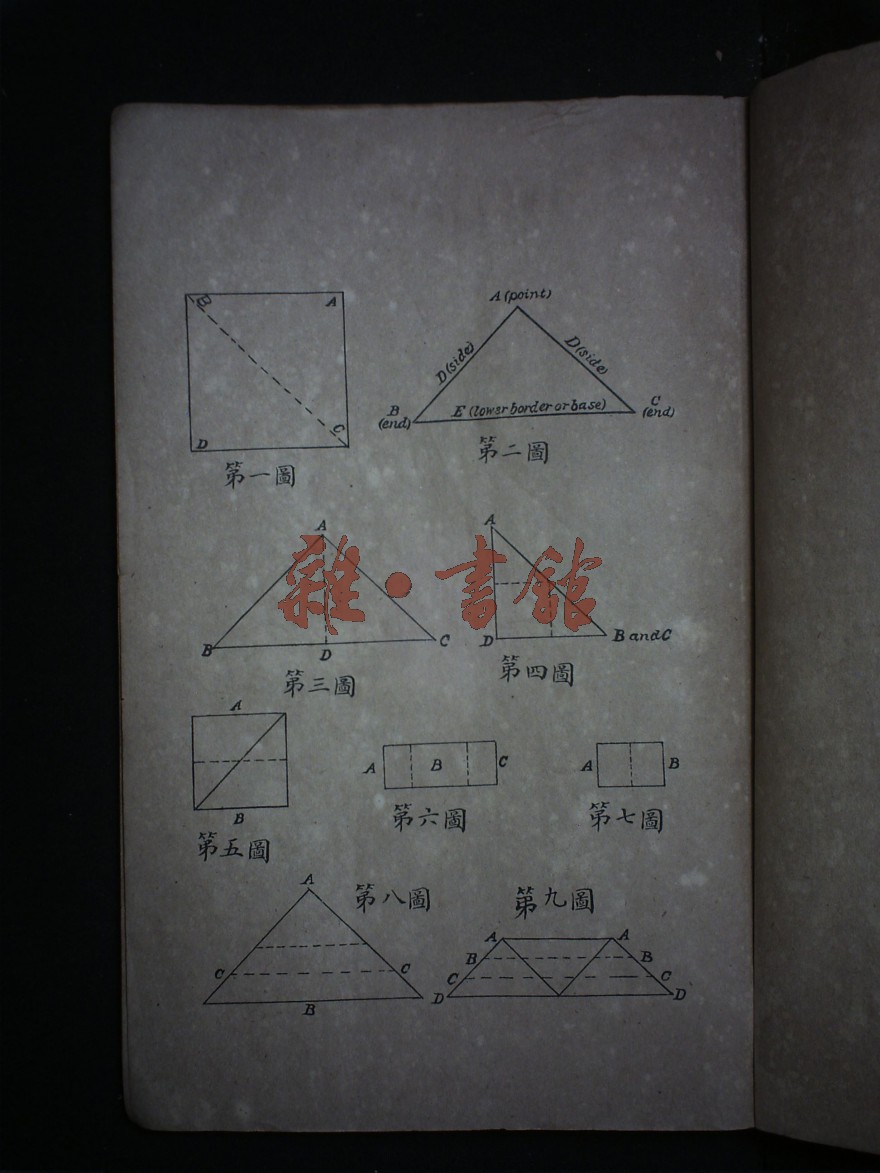 B A
D C
第一圖
A (point)
D (side) D (side)
B (end) E (lower border or base) C (end)
第二圖
A
B D C
第三圖
A
D B and C
第四圖
雜·書館
A
B
第五圖
A B C
第六圖
A B
第七圖
A
C C
B
第八圖
第九圖
A A
B B
C C
D D